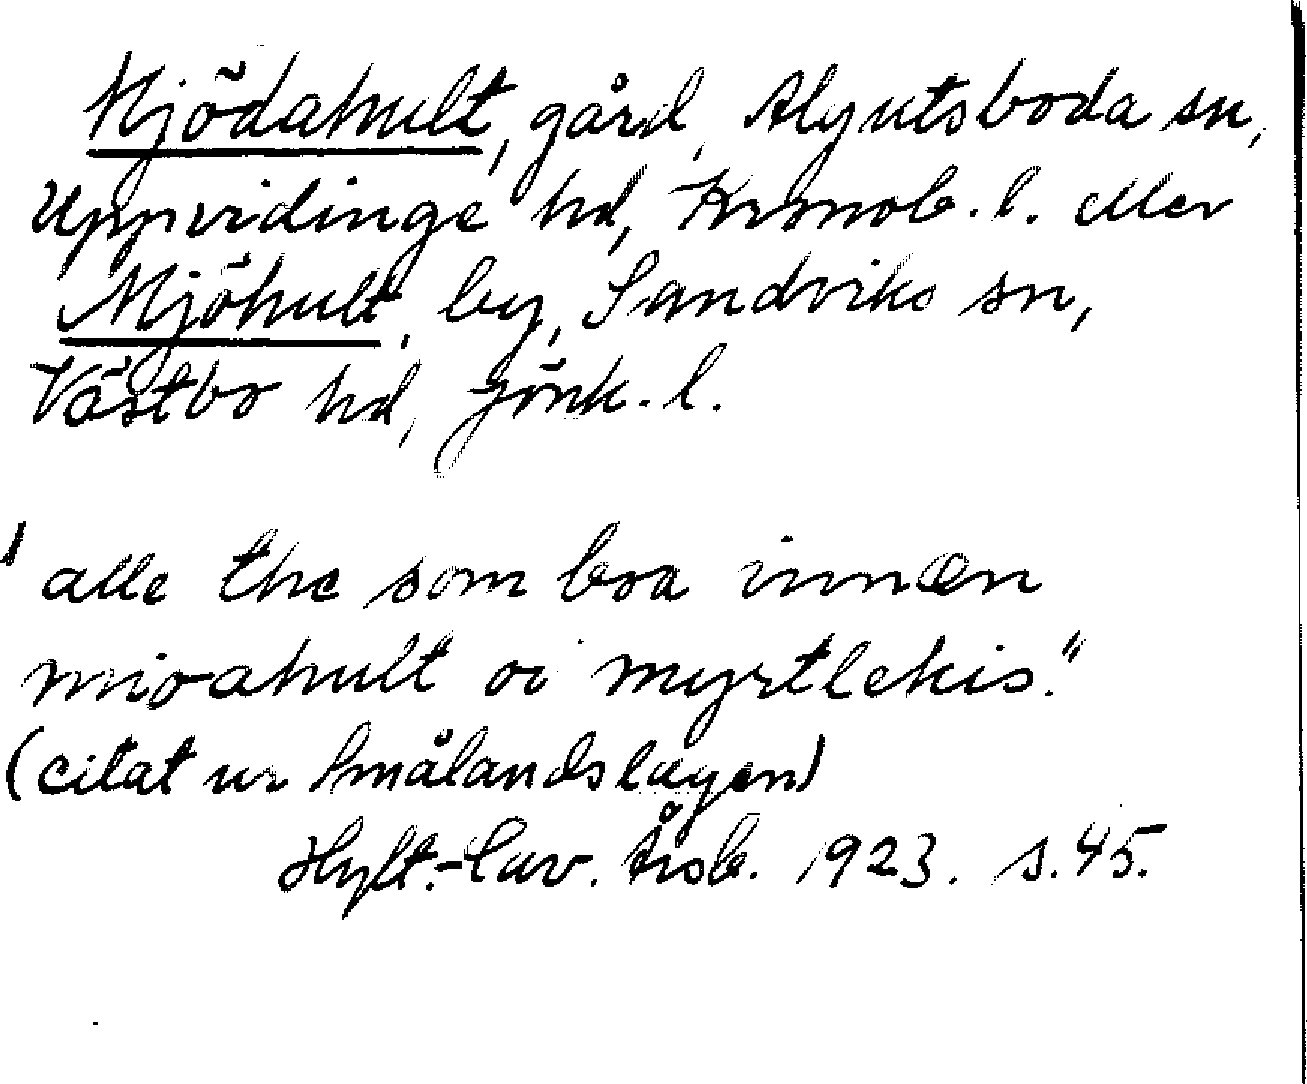 Mjödahult, gård, Algutsboda sn,
Uppvidinge hd, Kronob. l. eller
Mjöhult, by, Sandviks sn,
Västbo hd, Jönk. l.
"alle the som boa innæn
mioahult oi myrtlekis."
(citat ur Smålandslagen)
Hylt.-Cav. Årsb. 1923. s. 45.